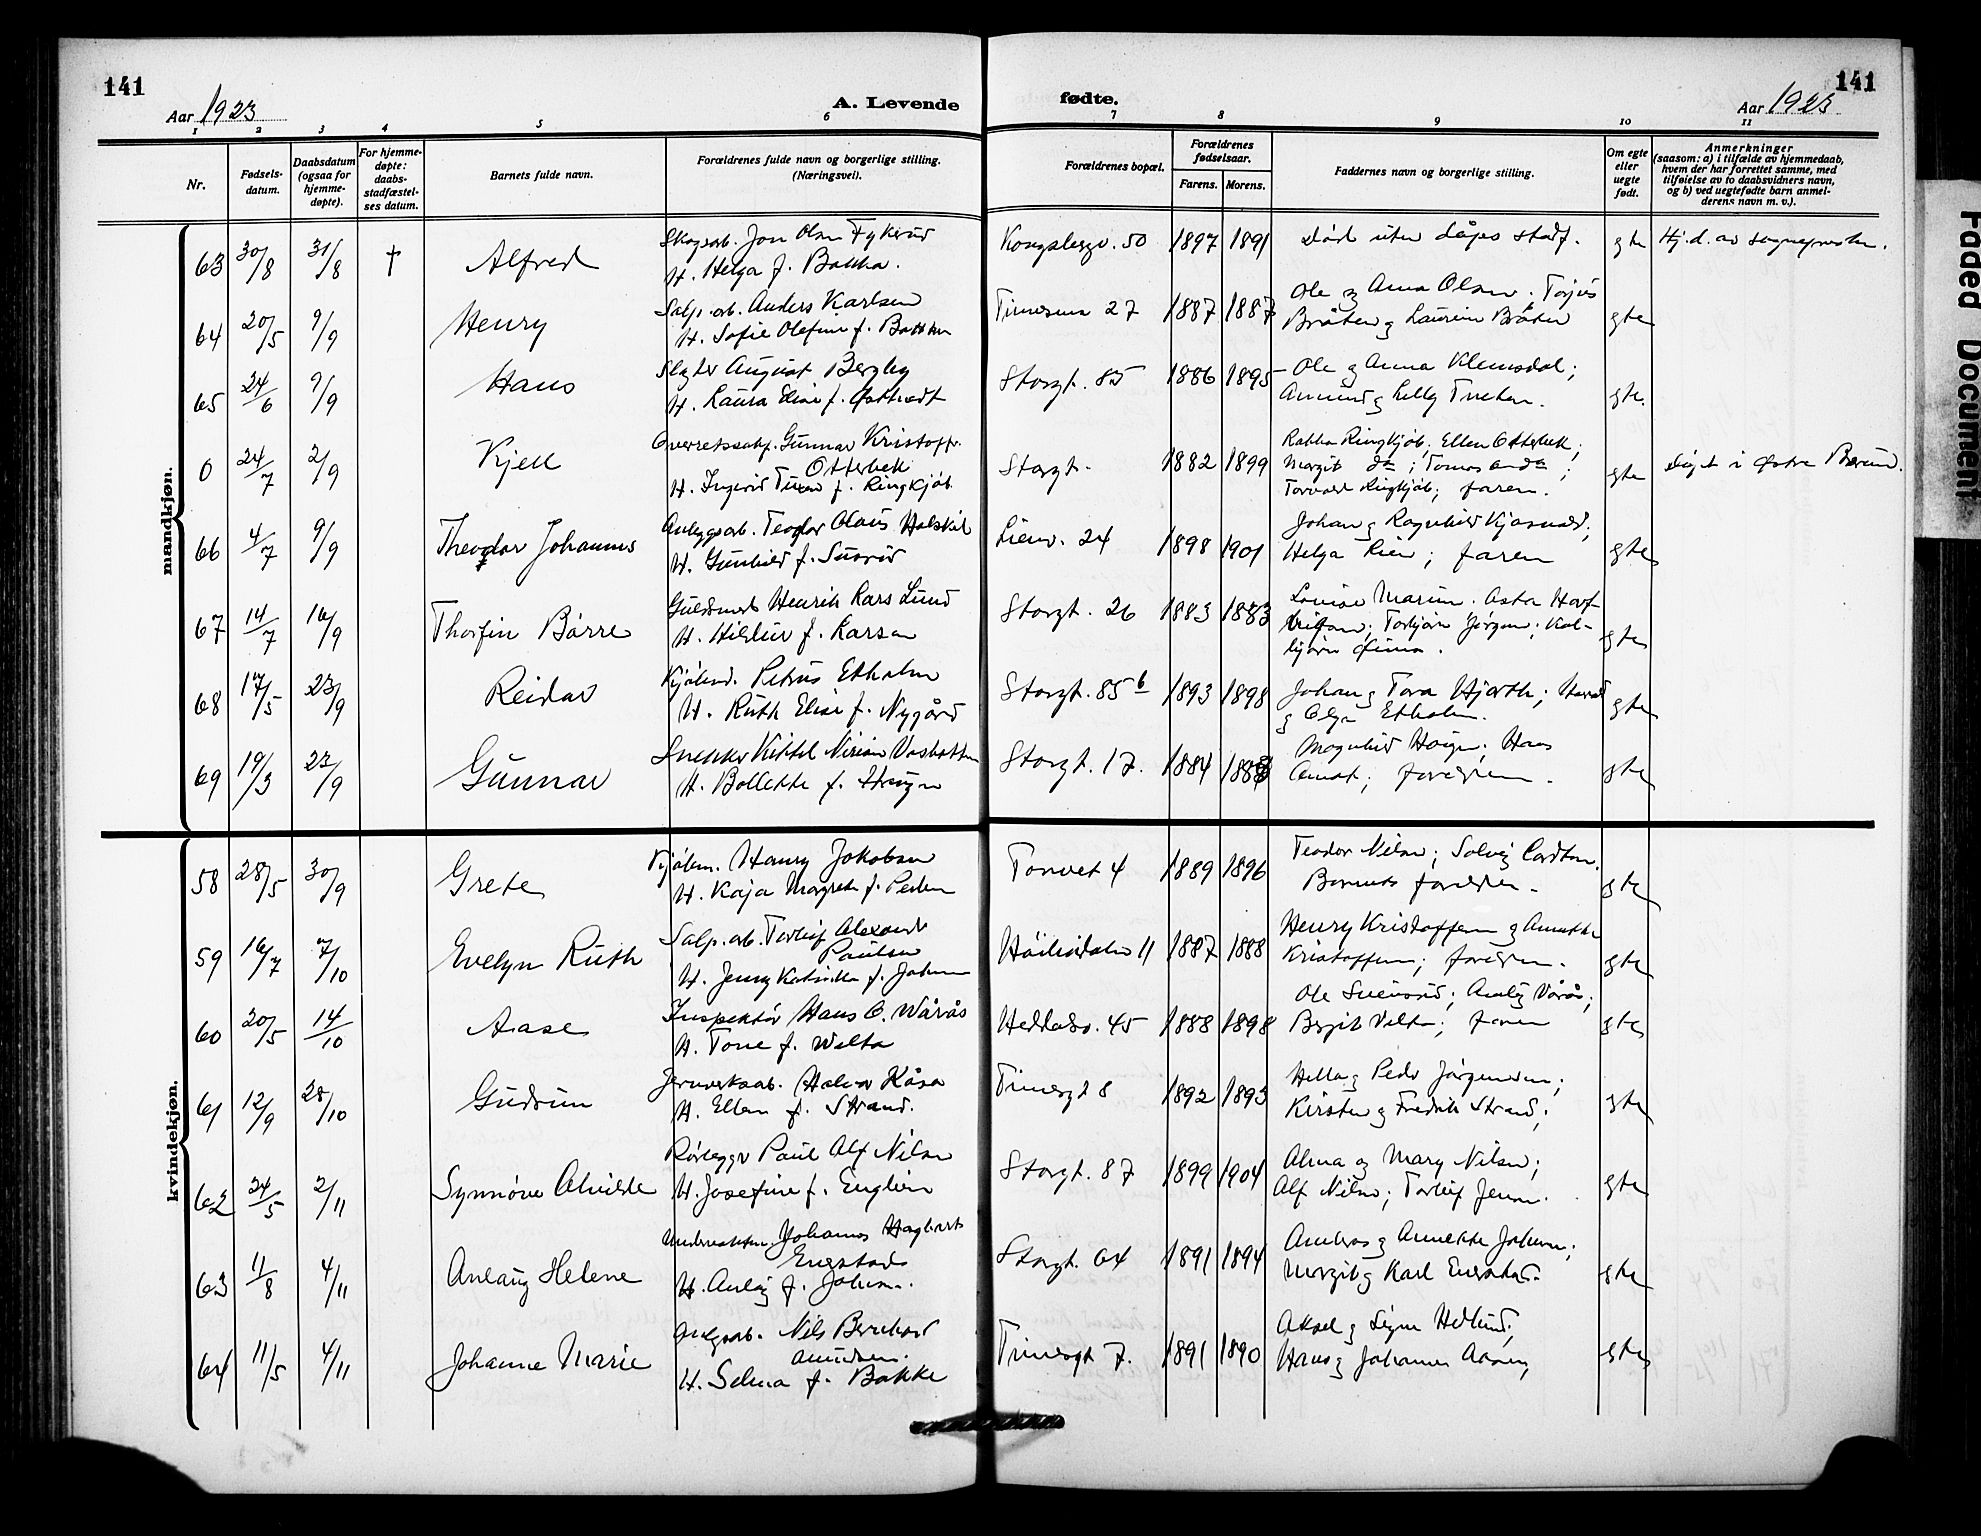 141
Aar 1923
A. Levende
fødte.
141
Aar 1923
1 2 3 4 5 6 7 8 9 10 11
Nr.
Fødsels-
datum.
Daabsdatum
(ogsaa for
hjemme-
døpte).
For hjemme-
døpte:
daabs-
stadfæstel-
ses datum.
Barnets fulde navn.
Forældrenes fulde navn og borgerlige stilling.
(Næringsvei).
Forældrenes bopæl.
Forældrenes
fødselsaar.
Farens. Morens.
Faddernes navn og borgerlige stilling.
Om egte
eller
uegte
født.
Anmerkninger
(saasom: a) i tilfælde av hjemmedaab,
hvem der har forrettet samme, med
tilføielse av to daabsvidners navn,
og b) ved uegtefødte barn anmel-
derens navn m. v.).
mandkjøn.
63 30/8 31/8 † Alfred
Skogsarb. Jon Olsen Fykerud
H. Helga f. Bakka.
Kongsbergv. 50 1897 1891
Død uten dåpes stadf. gte
Hj.d. av sognepresten.
64 20/5 9/9 Henry
Salp. arb. Anders Karlsen
H. Sofie Olefine f. Bakken
Tinnesmo 27 1887 1887
Ole og Anna Olsen. Torjus
Bråten og Laurine Bråten gte
65 24/6 9/9 Hans
Slagter August Bergby
H. Laura Elise f. Østtvedt
Storgt. 85 1886 1895
Ole og Anna Klemsdal;
Amund og Lelly Tveten. gte.
0 24/7 2/9 Kjell
Overretssakf. Gunnar Kristoffer
Otterbek
H. Ingerid f. Ringkjøb.
Storgt. 1882 1899
Rakka Ringkjøb; Ellen Otterbek;
Margit do;
Torvald Ringkjøb; faren. gte
døpt i Østre Bærum.
66 4/7 9/9 Theodor Johannes
Anleggsarb. Teodor Olaus Holskil
H. Gunhild f. Susrud
Lienv. 24 1898 1901
Johan og Ragnhild Kjosvold;
Helga Lien; faren gte
67 14/7 16/9 Thorfin Børre
Guldsmed Henrik Lars Lund
H. Hildur f. Larsen
Storgt. 26 1883 1883
Louise Marum. Asta
Torbjørn Jørgen; Kol-
bjørn gte
68 17/5 23/9 Reidar
Kjøbmd. Petrus Etholm
H. Ruth Elise f. Nygård
Storgt. 85 b 1893 1898
Johan og Tora Hjorth; Harald
og Olga Etholm. gte
69 19/3 23/9 Gunnar
Snekker Kittel Nirian
H. Bollette f. Haugen
Storgt. 17. 1884 1888
Magnhild Haugen; Hans
Amot; forældrene. gte
kvindekjøn.
58 28/5 30/9 Grete
Kjøbm. Harry Jakobsen
H. Kaja Margrete f. Pedersen
Torvet 4 1889 1896
Teodor Nilsen; Solveig Carlsen.
Barnets forældre. gte
59 16/7 7/10 Evelyn Ruth
Salp. arb. Torleif Alexander
Paulsen
H. Jenny Katinka f. Johnsen
11 1887 1888
Henry Kristoffersen og Annette
Kristoffersen; forældre. gte
60 20/5 14/10 Aase
Inspektør Hans O. Wårås
H. Tone f. Welta
Heddalsv. 45 1888 1898
Ole Sveinsrud; Anlaug Vårås;
Bergit Velta; faren gte
61 12/9 28/10 Gudrun
Jernverksarb. Halvor Kåsa
H. Ellen f. Strand.
Tinnesgt 8 1892 1893
Hella og Peder Jørgensen;
Kirsten og Fredrik Strand; gte
62 24/5 2/11 Synnøve Alvilde
Rørlegger Paul Alf Nilsen
H. Josefine f. Englien
Storgt. 87 1899 1904
Alma og Mary Nilsen;
Alf Nilsen; Torleif Jensen. gte
63 11/8 4/11 Anlaug Helene
Undermaskin. Johannes Hagbart
Enerstad
H. Anlaug f. Johnsen.
Storgt. 64 1891 1894
Ambros og Annette Johnsen;
Margit og Karl Enerstad. gte
64 11/5 4/11 Johanne Marie
Anlgsarb. Nils Bernhard
Amundsen.
H. Selma f. Bakke
Tinnesgt 7. 1891 1890
Aksel og Signe Hedlund;
Hans og Johannes Aasen; gte
Faded Document